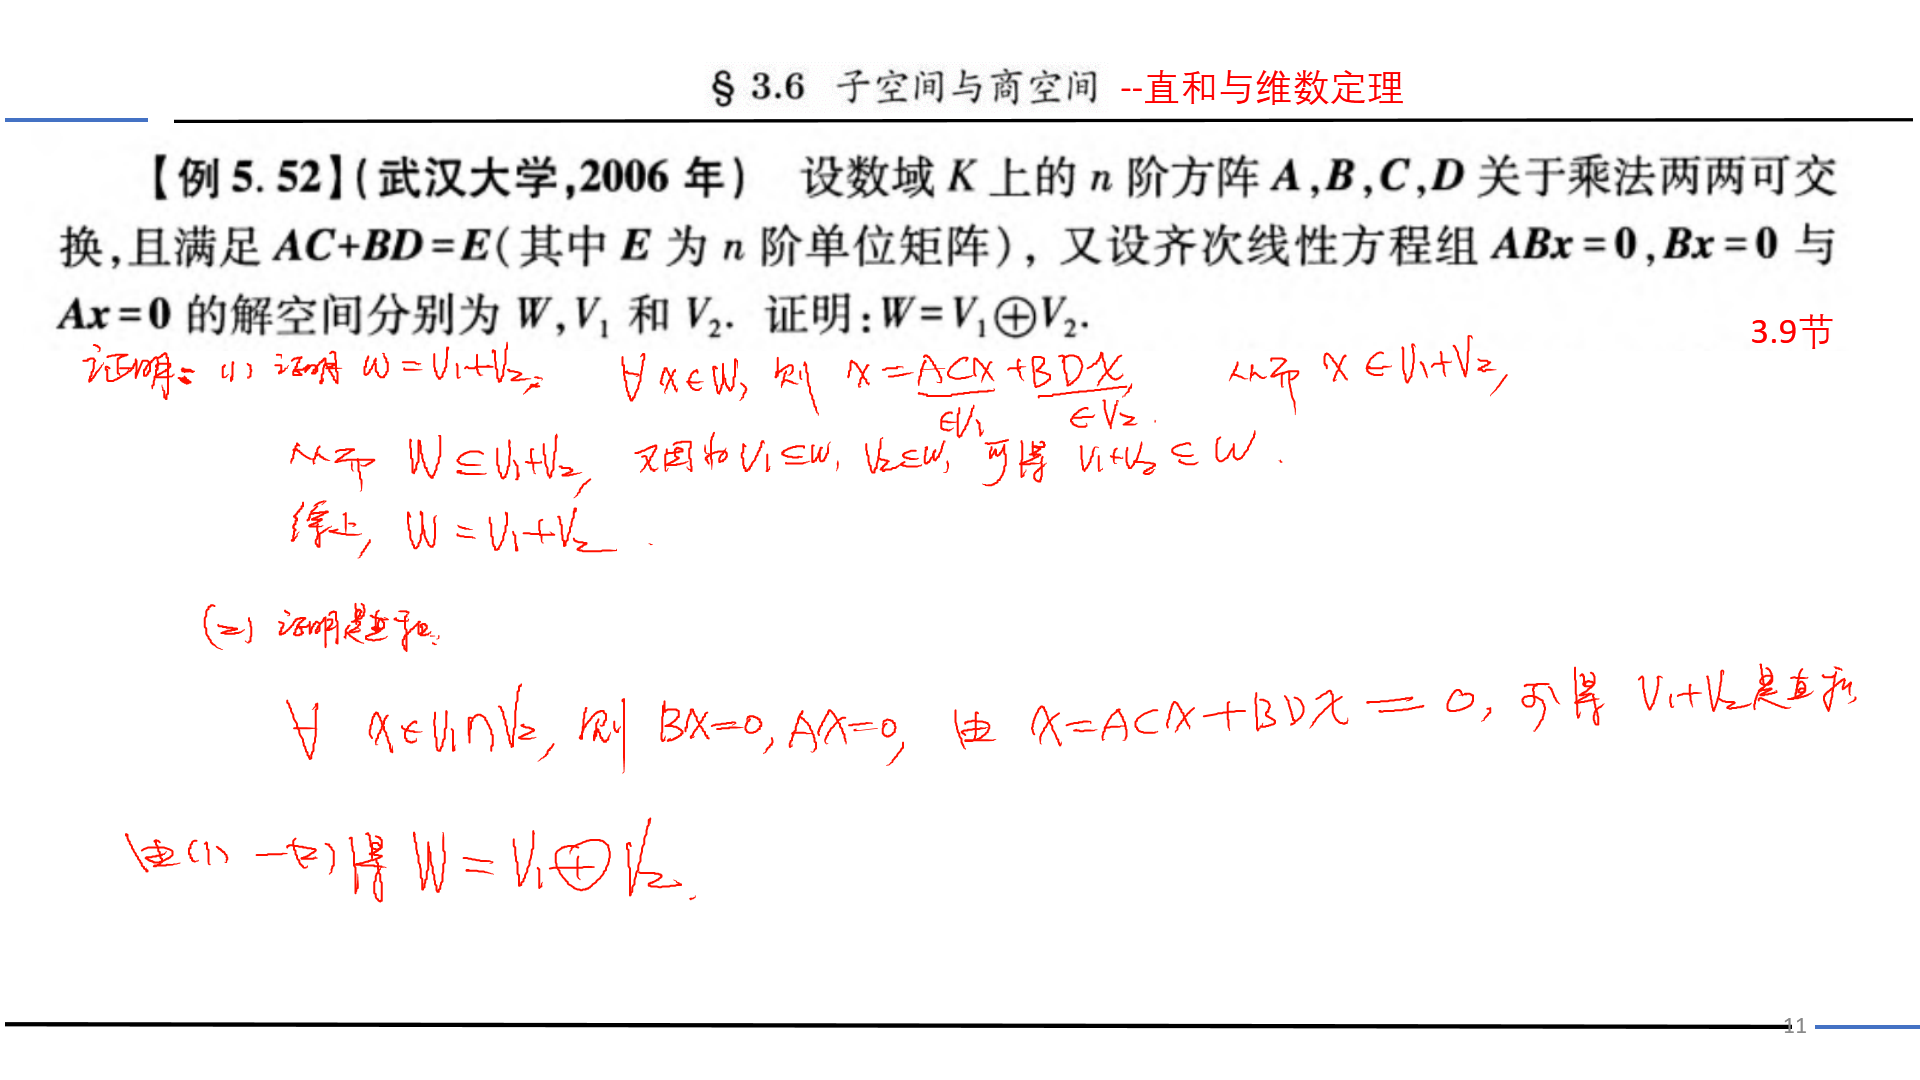 § 3.6 子空间与商空间 --直和与维数定理
【例 5.52】(武汉大学,2006 年) 设数域 K 上的 n 阶方阵 A,B,C,D 关于乘法两两可交
换,且满足 AC+BD=E(其中 E 为 n 阶单位矩阵), 又设齐次线性方程组 ABx=0,Bx=0 与
Ax=0 的解空间分别为 W,V₁ 和 V₂. 证明:W=V₁⊕V₂.
3.9节
证明: (1) 证明 W=V₁+V₂, ∀x∈W, 则 x=ACx+BDx, 从而 x∈V₁+V₂,
∈V₁ ∈V₂.
从而 W⊆V₁+V₂, 又因为 V₁⊆W, V₂⊆W, 可得 V₁+V₂⊆W.
综上, W=V₁+V₂.
(2) 证明是直和.
∀ x∈V₁∩V₂, 则 BX=0, AX=0, 由 X=ACX+BDX=0, 可得 V₁+V₂是直和
由(1)-(2)得 W=V₁⊕V₂.
11